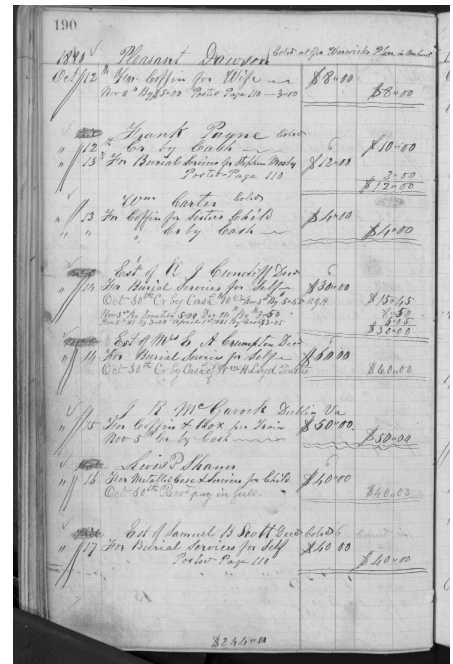 190
1880 Pleasant Dawson Cold at Geo Warwicks Place in Amherst
Oct 12th For Coffin for Wife $8.00
Nov 8th By $5.00 Posted Page 110 3.00 $8.00
Frank Payne Cold
" 12th Cr by Cash $10.00
" 13th For Burial Services for Stephen Mosby $12.00
Posted Page 110 2.00
$12.00
Wm Carter Cold
" 13 For Coffin for Sisters Child $4.00
" " " Cr by Cash $4.00
Est of R J Cundiff Decd
" 14 For Burial Services for Self $30.00
Oct 30th Cr by Cash Nov 5th By 5.45 $15.45
Nov 5th for Donation 5.00 Dec 24th By
$30.00
Est of Mrs L A Crumpton Decd
" 14 For Burial Services for Self $60.00
Oct 30th Cr by Cash of H Loyd $60.00
J R McGavock Dublin Va
" 15 For Coffin & Box per Train $50.00
Nov 5th Cr by Cash $50.00
Lewis P Shaner
" 16 For Metallic Case & Services for Child $40.00
Oct 30th Recd pay in full $40.00
Est of Samuel B Scott Decd Cold
" 17 For Burial Services for Self $40.00
Posted Page 110 $40.00
$244.00